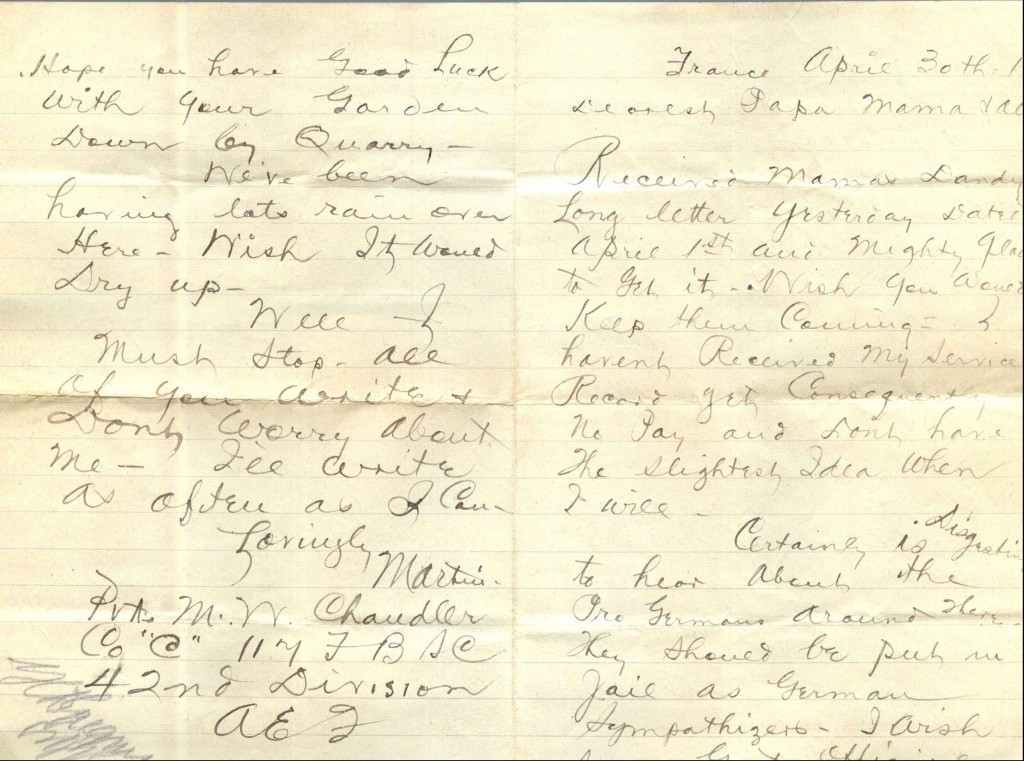 Hope you have Good Luck
With your Garden
Down by Quarry-
We've been
having lots rain over
Here- Wish It Would
Dry up-
Well I
Must Stop- All
of you write &
Dont Worry About
Me- I'll write
As often as I Can-
Lovingly
Martin-
Pvt. M. W. Chandler
Co "C" 117 F B S C
42nd Division
A E F
France April 30th-1
Dearest Papa Mama & al
Received Mamas Dandy
Long letter Yesterday Date
April 1st and Mighty Gla
to Get it-. Wish you Would
Keep them Coming- I
havent Received My Service
Record yet, Consequently
No Pay and Dont have
The slightest Idea When
I will-
Certainly is Disgustin
to hear About the
Pro Germans Around There-
They Should be put in
Jail as German
Sympathizers- I Wish